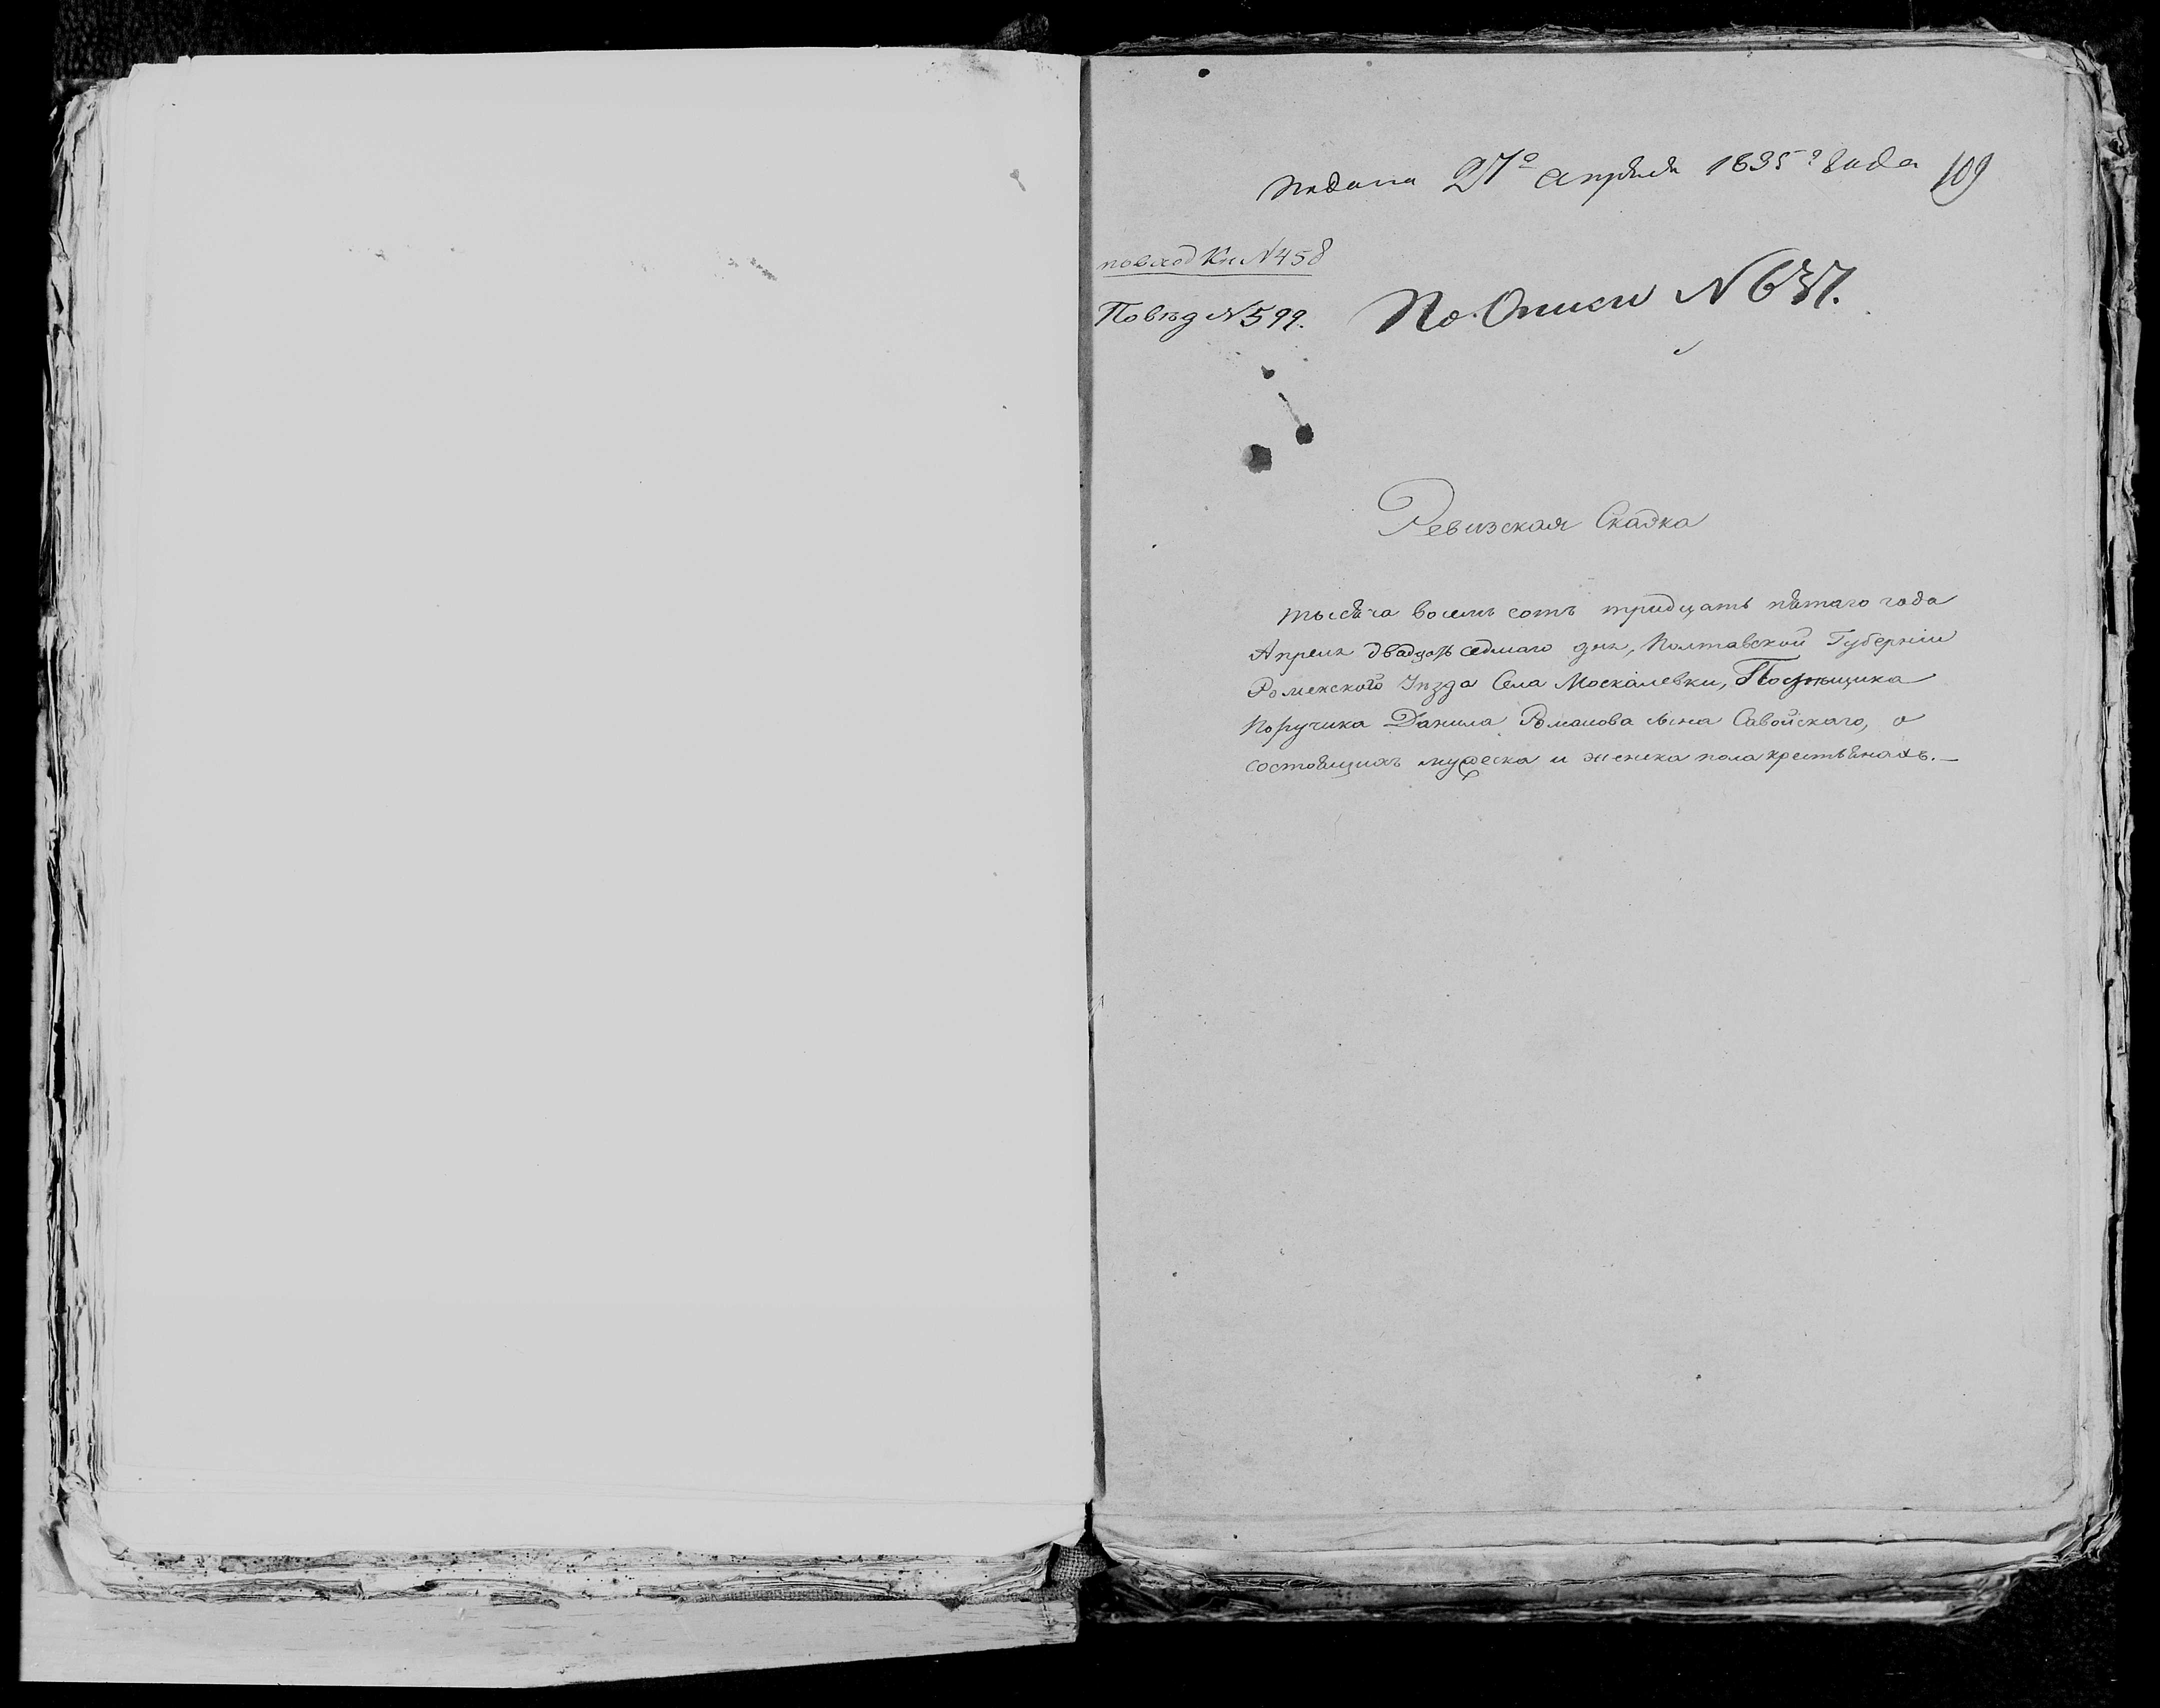 подана 27º апреля 1835º года 109
по вход Кн N 458
По вѣд N 599.
По Описи N 637.
Ревизская Сказка
тысяча восемь сотъ тридцать пятаго года
Апреля двадцать седмаго дня, Полтавской Губерніи
Роменского Уезда Села Москалевки, Помѣщика
Поручика Данила Романова сына Савойскаго, о
состоящихъ мужеска и женска пола крестьянахъ.—